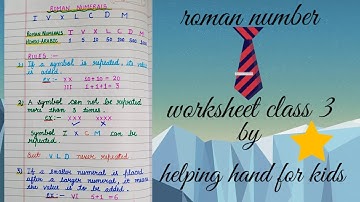 ROMAN NUMERALS
I V X L C D M
ROMAN NUMERALS I V X L C D M
HINDU ARABIC 1 5 10 50 100 500 1000
RULES :-
1) If a symbol is repeated, its value
is added.
EX :- XX 10+10 = 20
III 1+1+1 = 3
2) A symbol can not be repeated
more than 3 times.
EX :- XXX XXXX
Symbol I X C M can be
repeated.
But V L D never repeated
3) If a smaller numeral is placed
after a larger numeral, it means
the value is to be added.
EX :- VI 5+1 = 6
roman number
worksheet class 3
by
helping hand for kids